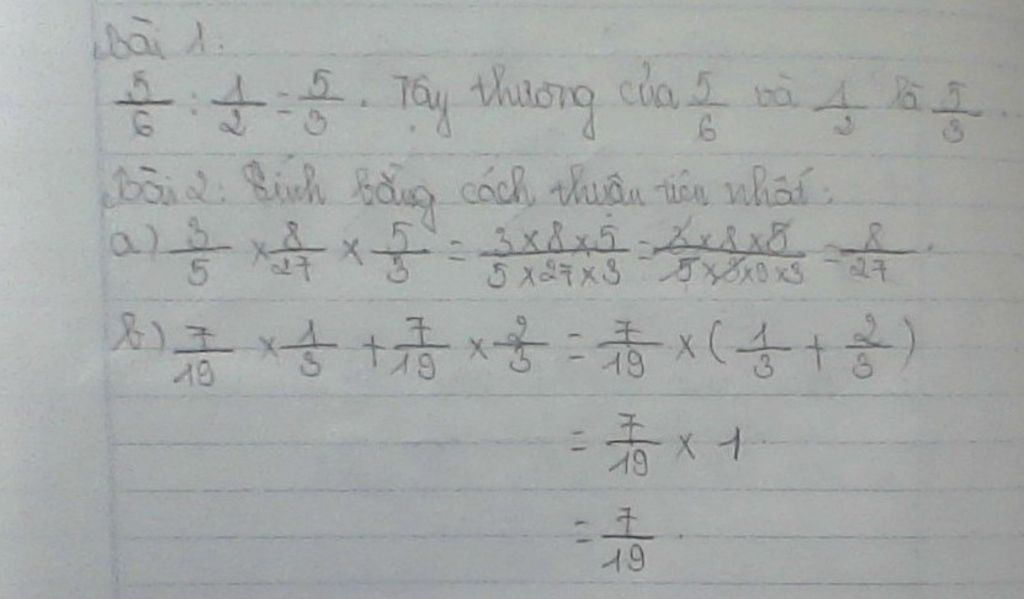 Bài 1:
5/6 : 1/2 = 5/3. Vậy thương của 5/6 và 1/2 là 5/3.
Bài 2: Tính bằng cách thuận tiện nhất:
a) 3/5 × 8/27 × 5/3 = (3×8×5)/(5×27×3) = (3×8×5)/(5×3×9×3) = 8/27.
b) 7/19 × 1/3 + 7/19 × 2/3 = 7/19 × (1/3 + 2/3)
= 7/19 × 1
= 7/19.